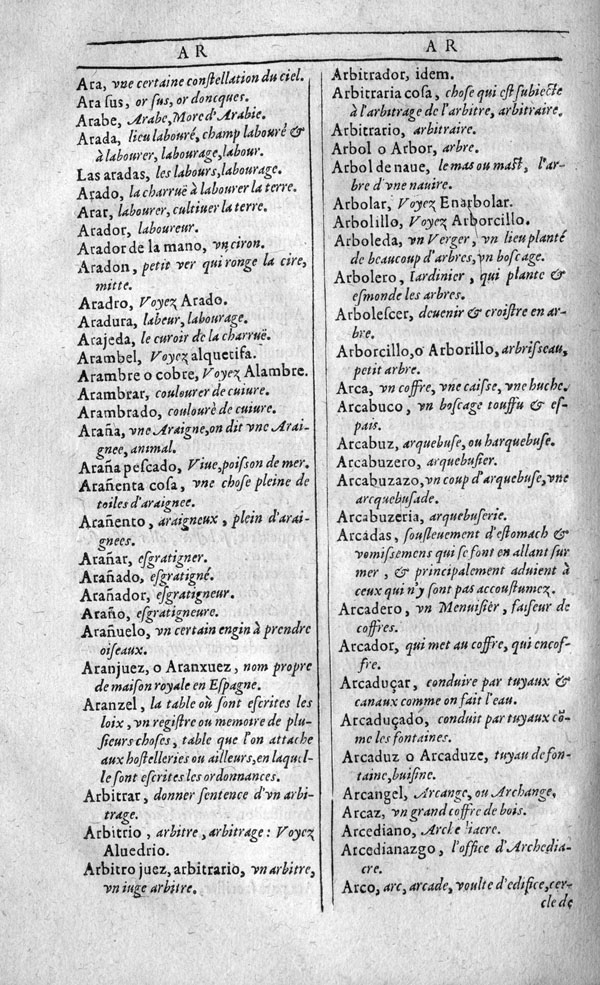 AR
Ara, vne certaine conſtellation du ciel.
Ara ſus, or ſus, or doncques.
Arabe, Arabe, More d'Arabie.
Arada, lieu labouré, champ labouré &
à labourer, labourage, labour.
Las aradas, les labours, labourage.
Arado, la charruë à labourer la terre.
Arar, labourer, cultiuer la terre.
Arador, laboureur.
Arador de la mano, vn ciron.
Aradon, petit ver qui ronge la cire,
mitte.
Aradro, Voyez Arado.
Aradura, labeur, labourage.
Arajeda, le curoir de la charruë.
Arambel, Voyez alquetifa.
Arambre o cobre, Voyez Alambre.
Arambrar, coulourer de cuiure.
Arambrado, coulouré de cuiure.
Araña, vne Araigne, on dit vne Arai-
gnee, animal.
Araña peſcado, Viue, poiſſon de mer.
Arañenta coſa, vne choſe pleine de
toiles d'araignee.
Arañento, araigneux, plein d'arai-
gnees.
Arañar, eſgratigner.
Arañado, eſgratigné.
Arañador, eſgratigneur.
Araño, eſgratigneure.
Arañuelo, vn certain engin à prendre
oiſeaux.
Aranjuez, o Aranxuez, nom propre
de maiſon royale en Eſpagne.
Aranzel, la table où ſont eſcrites les
loix, vn regiſtre ou memoire de plu-
ſieurs choſes, table que l'on attache
aux hoſtelleries ou ailleurs, en laquel-
le ſont eſcrites les ordonnances.
Arbitrar, donner ſentence d'vn arbi-
trage.
Arbitrio, arbitre, arbitrage: Voyez
Aluedrio.
Arbitro juez, arbitrario, vn arbitre,
vn iuge arbitre.
AR
Arbitrador, idem.
Arbitraria coſa, choſe qui eſt ſubiecte
à l'arbitrage de l'arbitre, arbitraire.
Arbitrario, arbitraire.
Arbol o Arbor, arbre.
Arbol de naue, le mas ou maſt, l'ar-
bre d'vne nauire.
Arbolar, Voyez Enarbolar.
Arbolillo, Voyez Arborcillo.
Arboleda, vn Verger, vn lieu planté
de beaucoup d'arbres, vn boſcage.
Arbolero, Iardinier, qui plante &
eſmonde les arbres.
Arboleſcer, deuenir & croiſtre en ar-
bre.
Arborcillo, o Arborillo, arbriſſeau,
petit arbre.
Arca, vn coffre, vne caiſſe, vne huche.
Arcabuco, vn boſcage touffu & eſ-
pais.
Arcabuz, arquebuſe, ou harquebuſe.
Arcabuzero, arquebuſier.
Arcabuzazo, vn coup d'arquebuſe, vne
arcquebuſade.
Arcabuzeria, arquebuſerie.
Arcádas, ſouſleuement d'eſtomach &
vomiſſemens qui ſe font en allant ſur
mer, & principalement aduient à
ceux qui n'y ſont pas accouſtumez.
Arcadero, vn Menuiſier, faiſeur de
coffres.
Arcador, qui met au coffre, qui encof-
fre.
Arcaduçar, conduire par tuyaux &
canaux comme on fait l'eau.
Arcaduçado, conduit par tuyaux cõ-
me les fontaines.
Arcaduz o Arcaduze, tuyau de fon-
taine, buiſine.
Arcangel, Arcange, ou Archange.
Arcaz, vn grand coffre de bois.
Arcediano, Arche iacre.
Arcedianazgo, l'office d'Archedia-
cre.
Arco, arc, arcade, voulte d'edifice, cer-
cle de